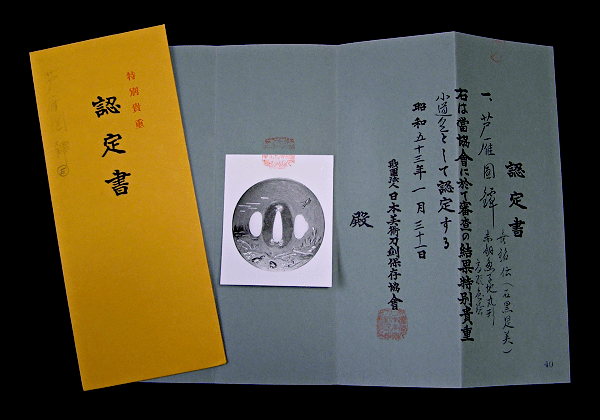 特別貴重
認定書
認定書
一、芦雁図鐔
無銘 伝（石黒是美）
赤銅魚子地丸形
右は當協會に於て審査の結果特別貴重
小道具として認定する
昭和五十三年一月三十一日
財団法人日本美術刀劍保存協會
殿
40